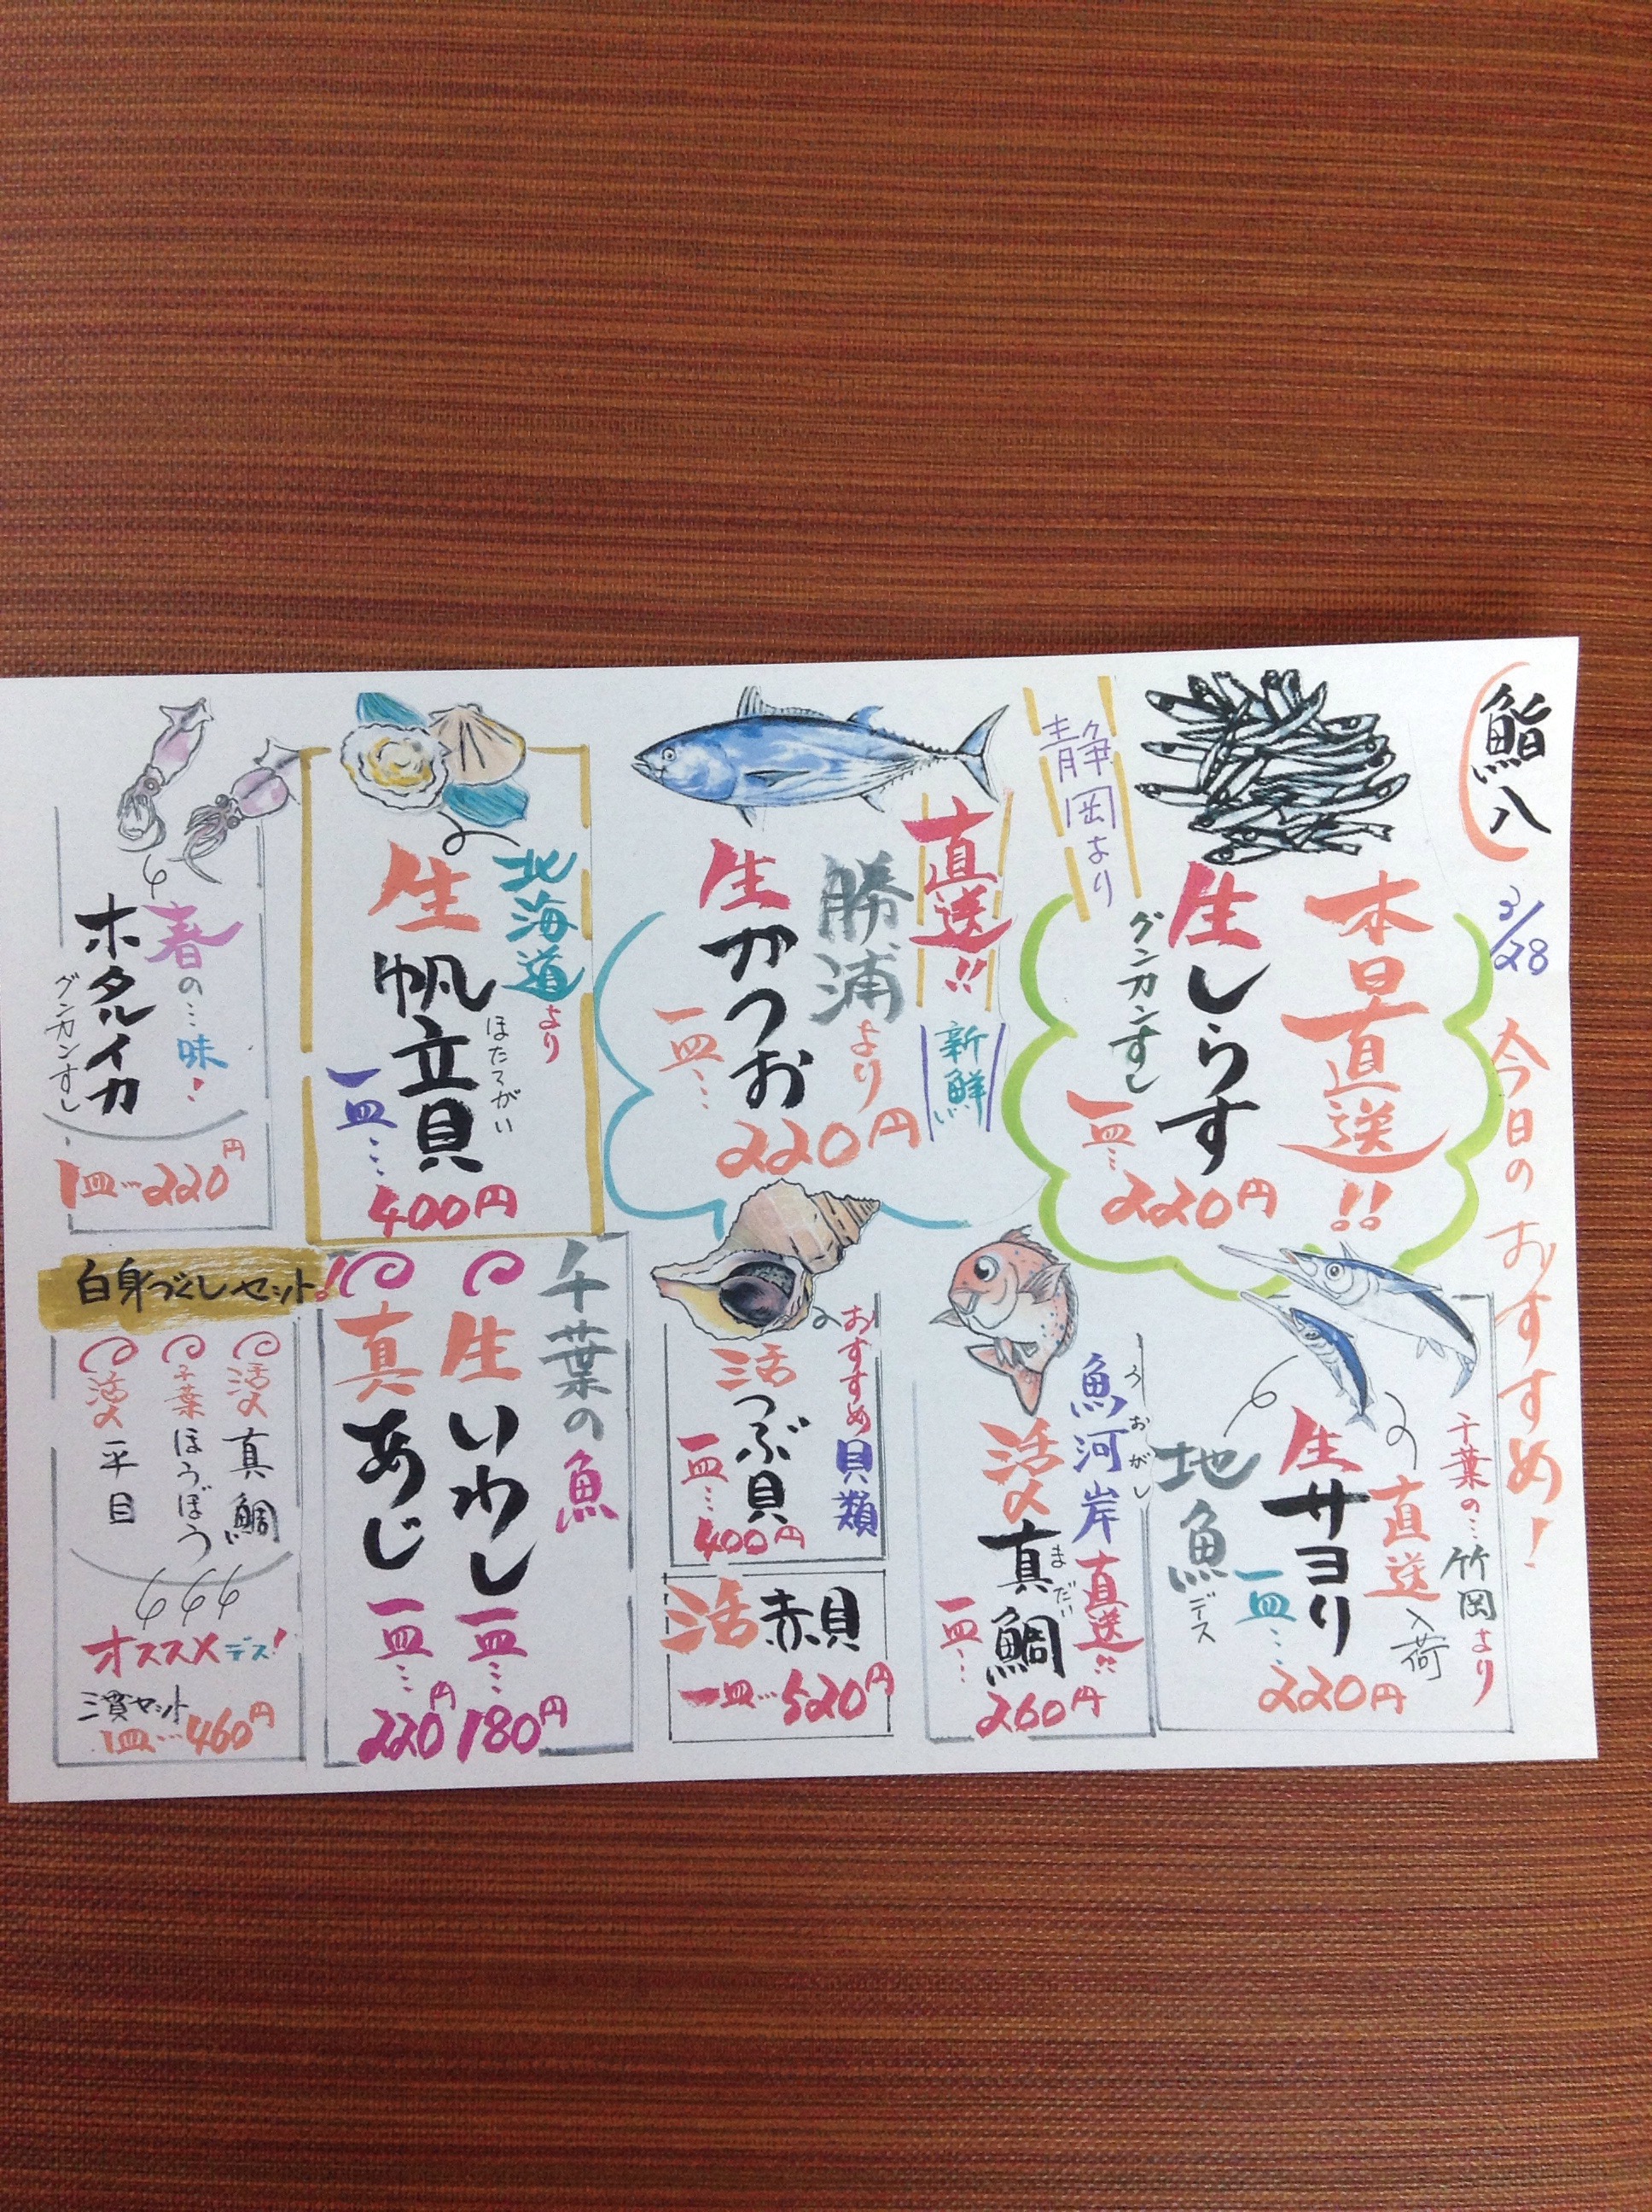 鮨八
3/28
今日のおすすめ!
本日直送!!
生しらす
グンカンすし
一皿…
220円
静岡より
直送!!
新鮮
勝浦より
生かつお
一皿…
220円
北海道より
生帆立貝
ほたてがい
一皿…
400円
春の…味!
ホタルイカ
グンカンすし
1皿…220円
千葉の…竹岡より
直送入荷
生サヨリ
一皿…
220円
地魚デス
魚河岸直送!!
うおがし
活〆真鯛
まだい
一皿…
260円
おすすめ貝類
活つぶ貝
一皿…
400円
活赤貝
一皿…520円
千葉の魚
生いわし
一皿…
180円
真あじ
一皿…
220円
白身づくしセット!
活〆真鯛
千葉ほうぼう
活〆平目
オススメデス!
三貫セット
1皿…460円